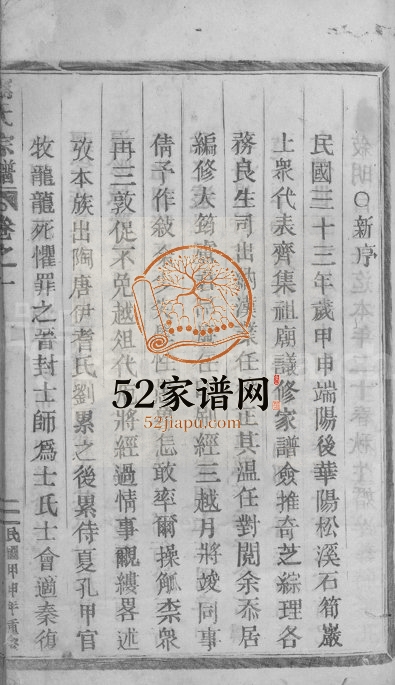 〇新序
民國三十三年歲甲申端陽後華陽松溪石筍巖
上眾代表齊集祖廟議修家譜僉推奇芝綜理各
務良生司出納漢業任 正其溫任對閱余忝居
編修大筠 任 經三越月將竣同事
倩予作敍 怎敢率爾操觚柰衆
再三敦促不免越俎代 將經過情事覼縷畧述
攷本族出陶唐伊耆氏劉累之後累侍夏孔甲官
牧龍龍死懼罪之晉封士師爲士氏士會適秦復
氏宗譜 卷之一
二 民國甲申年重修
52家谱网
52jiapu.com